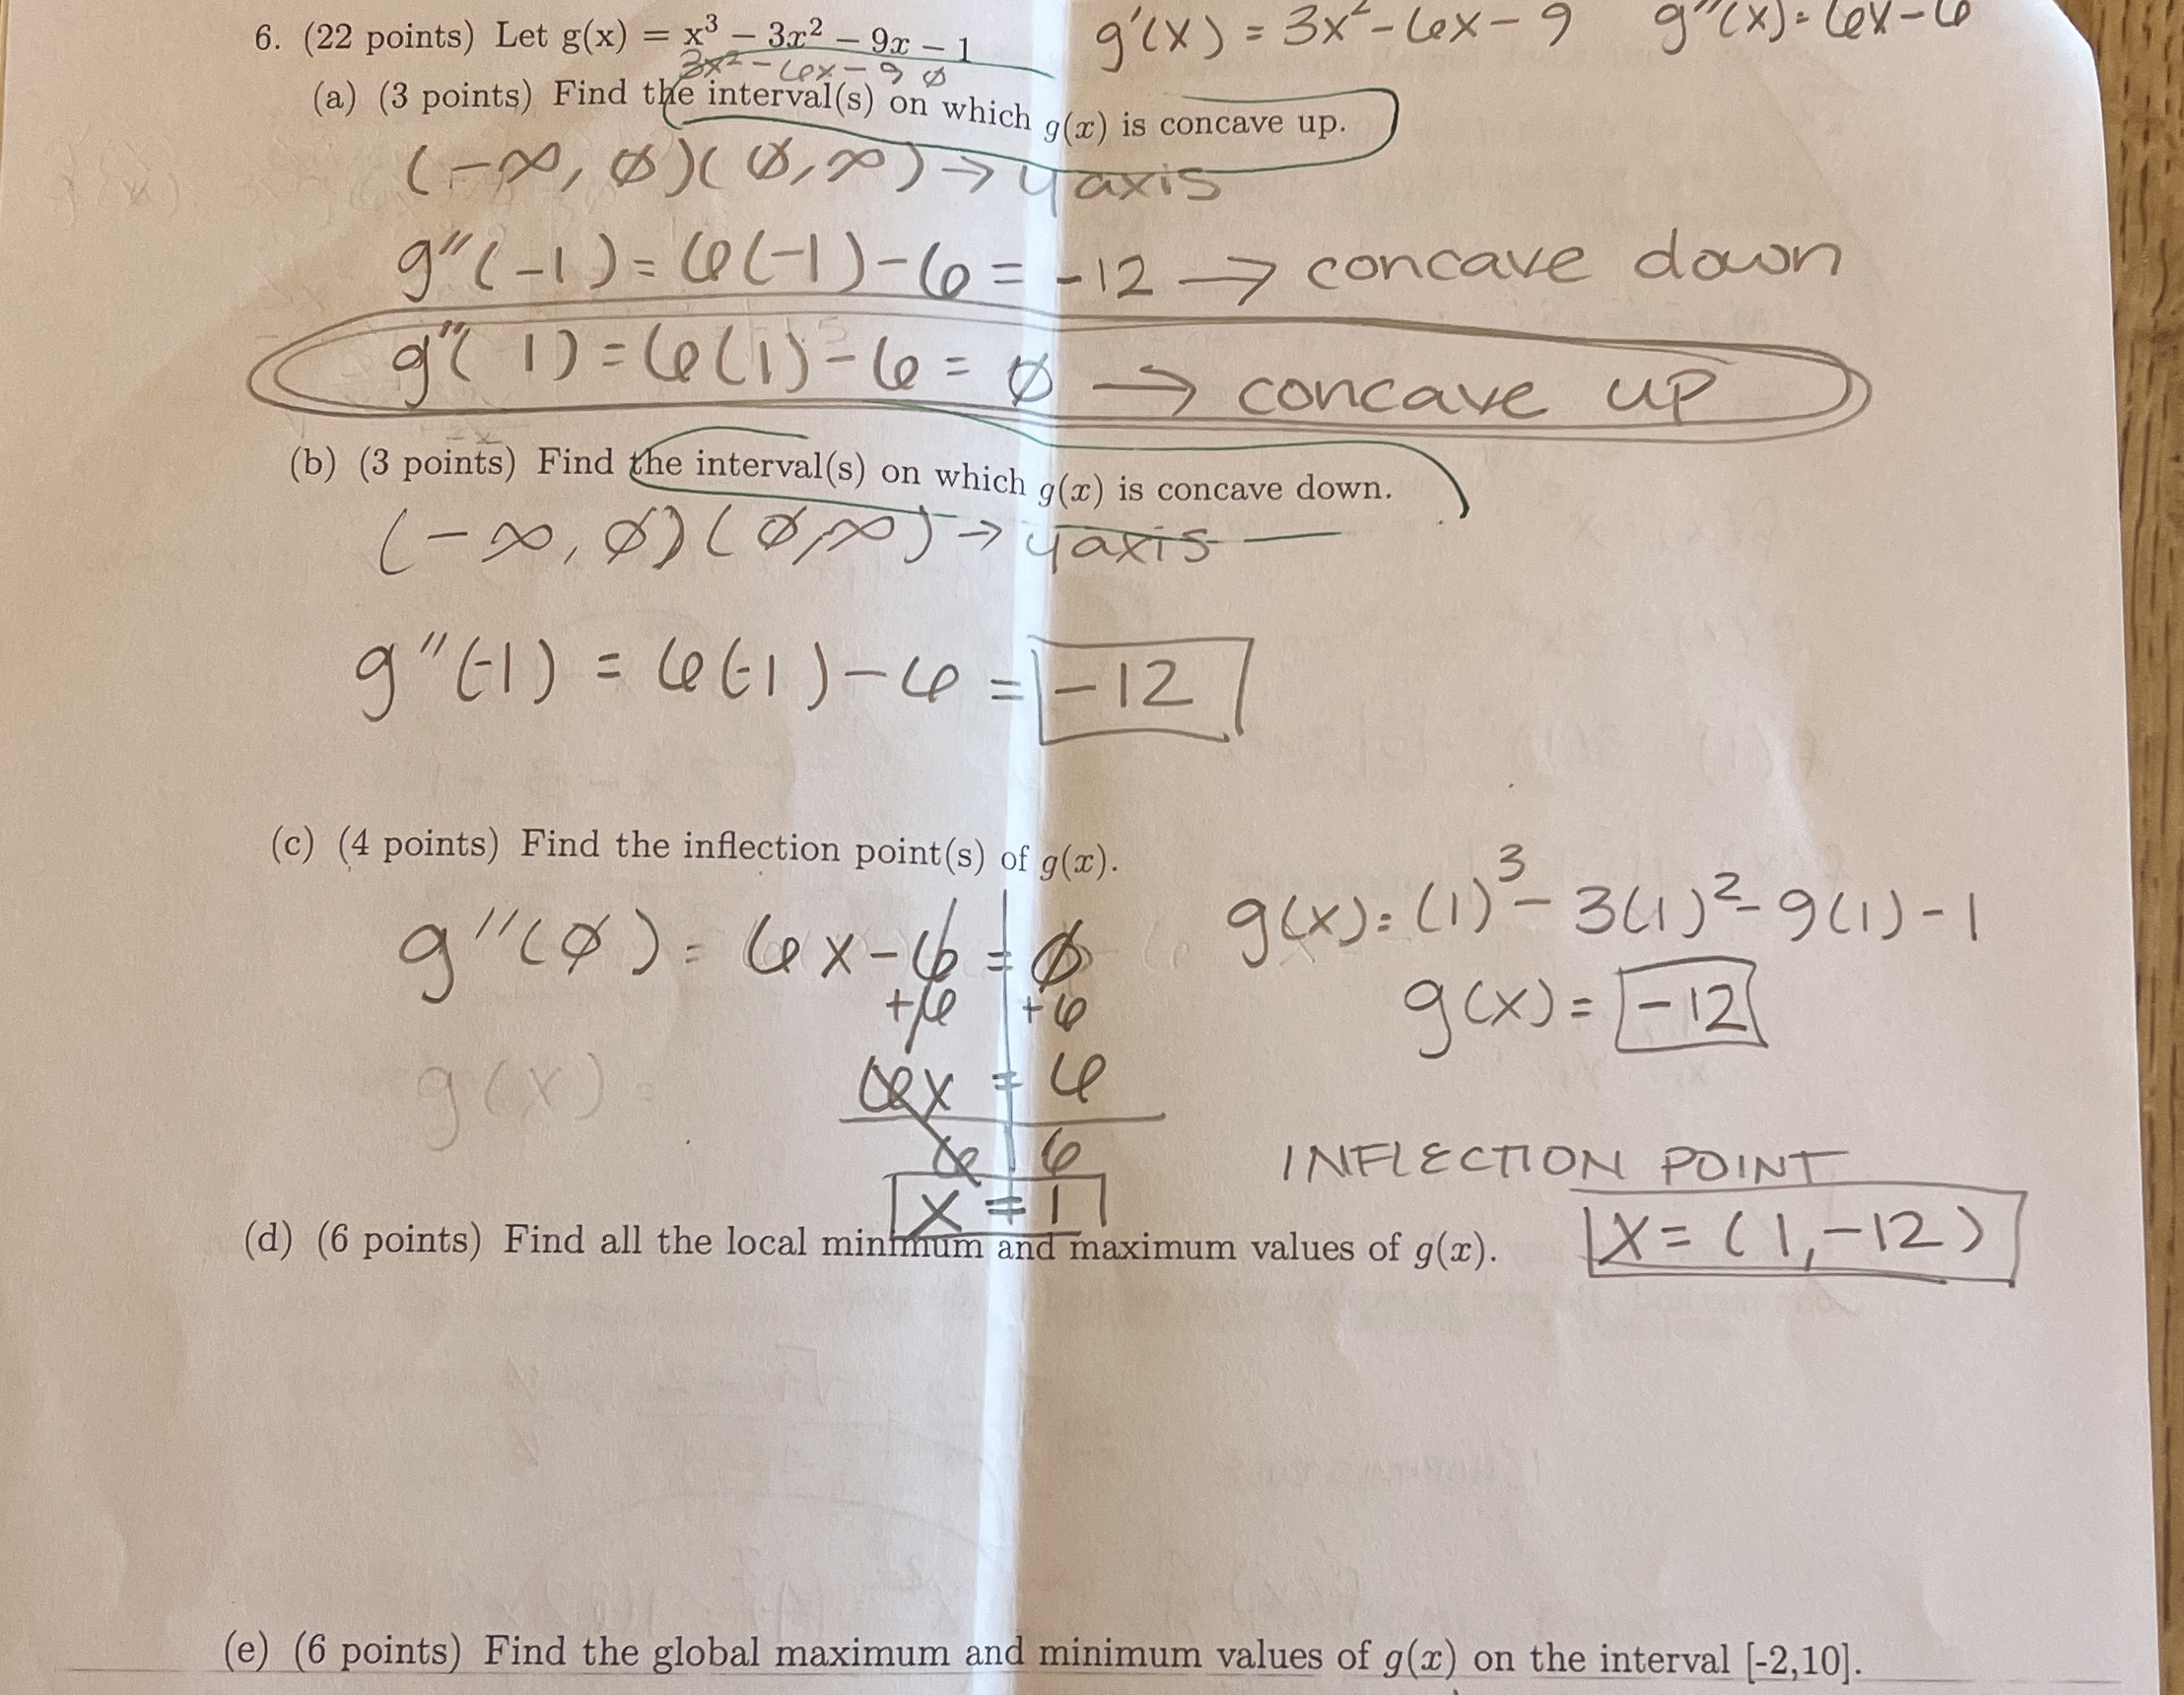 6. (22 points) Let g(x) = x³ − 3x² − 9x − 1
g'(x) = 3x² - 6x - 9 g''(x) = 6x - 6
3x² - 6x - 9 ∅
(a) (3 points) Find the interval(s) on which g(x) is concave up.
(-∞, ∅)(∅, ∞) → y axis
g''(-1) = 6(-1) - 6 = -12 → concave down
g''(1) = 6(1) - 6 = ∅ → concave up
(b) (3 points) Find the interval(s) on which g(x) is concave down.
(-∞, ∅)(∅, ∞) → y axis
g''(-1) = 6(-1) - 6 = -12
(c) (4 points) Find the inflection point(s) of g(x).
g''(∅) = 6x - 6 = ∅
+6 +6
6x = 6
6 6
x = 1
g(x) =
g(x) = (1)³ - 3(1)² - 9(1) - 1
g(x) = -12
INFLECTION POINT
X = (1, -12)
(d) (6 points) Find all the local minimum and maximum values of g(x).
(e) (6 points) Find the global maximum and minimum values of g(x) on the interval [-2,10].